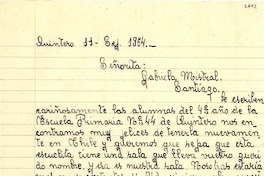 Quintero 11 - Sep. 1954.-
Señorita:
Gabriela Mistral.
Santiago.
Le escriben
cariñosamente las alumnas del 4º año de la
Escuela Primaria Nº 44 de Quintero nos en-
contramos muy felices de tenerla nuevamen-
te en Chile y queremos que sepa que esta
escuelita tiene una sala que lleva vuestro queri-
do nombre, y esa es nuestra sala. Nosotras